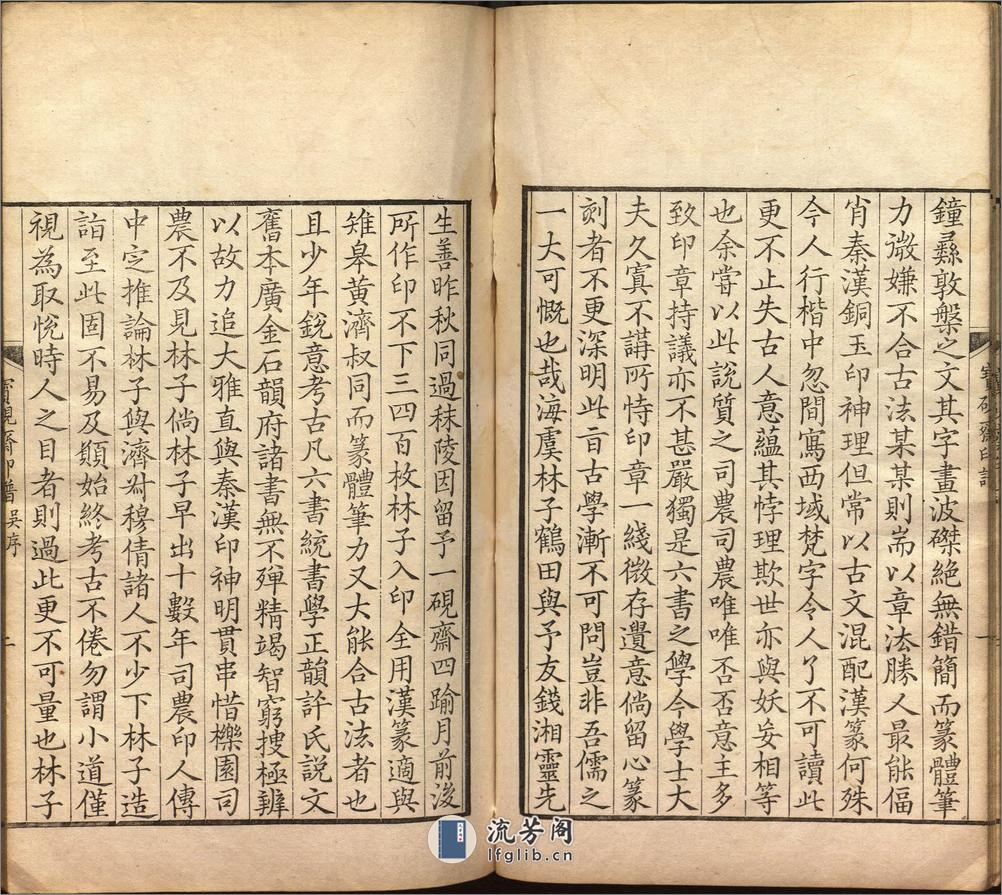 鐘彞敦槃之文其字畫波磔絶無錯簡而篆體筆
力微嫌不合古法某某則耑以章法勝人最能偪
肖秦漢銅玉印神理但常以古文混配漢篆何殊
今人行楷中忽間寫西域梵字令人了不可讀此
更不止失古人意蘊其悖理欺世亦與妖妄相等
也余嘗以此説質之司農司農唯唯否否意主多
致印章持議亦不甚嚴獨是六書之學今學士大
夫久寘不講所恃印章一綫微存遺意倘留心篆
刻者不更深明此旨古學漸不可問豈非吾儒之
一大可慨也哉海虞林子鶴田與予友錢湘靈先
生善昨秋同過秣陵因留予一硯齋四踰月前後
所作印不下三四百枚林子入印全用漢篆適與
雉皋黃濟叔同而篆體筆力又大能合古法者也
且少年銳意考古凡六書統書學正韻許氏説文
舊本廣金石韻府諸書無不殫精竭智窮搜極辨
以故力追大雅直與秦漢印神明貫串惜櫟園司
農不及見林子倘林子早出十數年司農印人傳
中定推論林子與濟叔穆倩諸人不少下林子造
詣至此固不易及顧始終考古不倦勿謂小道僅
視為取悅時人之目者則過此更不可量也林子
寶硯齋印譜
寶硯齋印譜 吳序 二
流芳阁
lfglib.cn